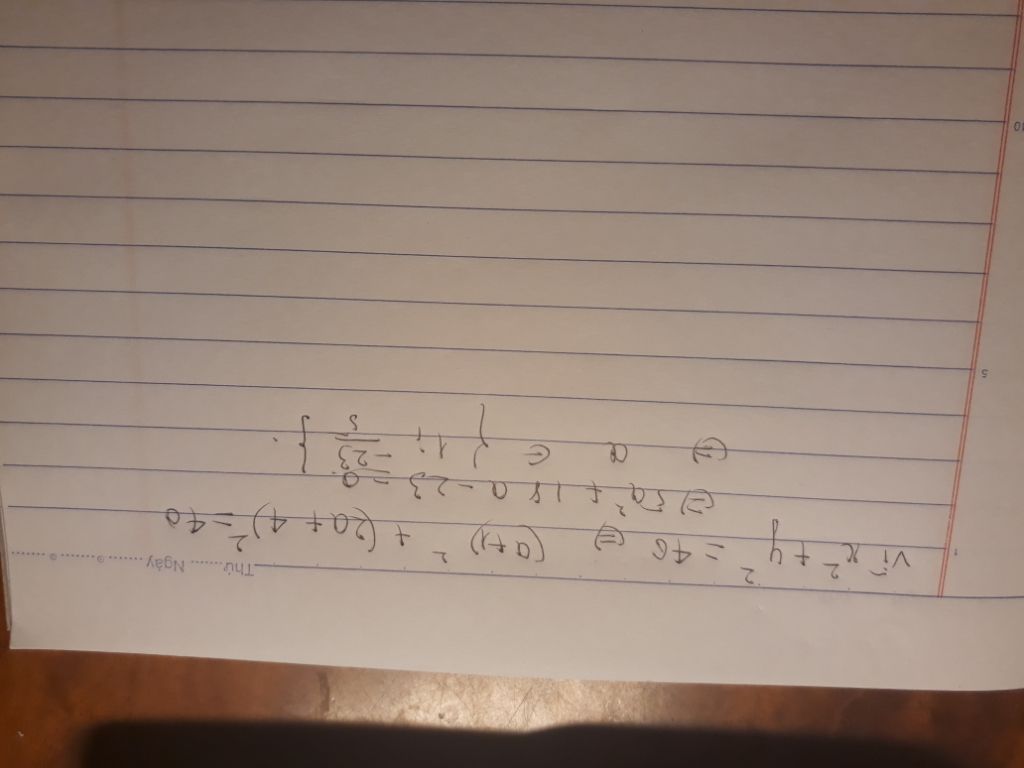 Thứ ........ Ngày ........ 9 ........ 9 ........
Vì x² + y² = 40 ⇔ (a+1)² + (2a + 4)² = 40
⇔ 5a² + 18a - 23 = 0
⇔ a ∈ {1; -23/5}.
1
5
10